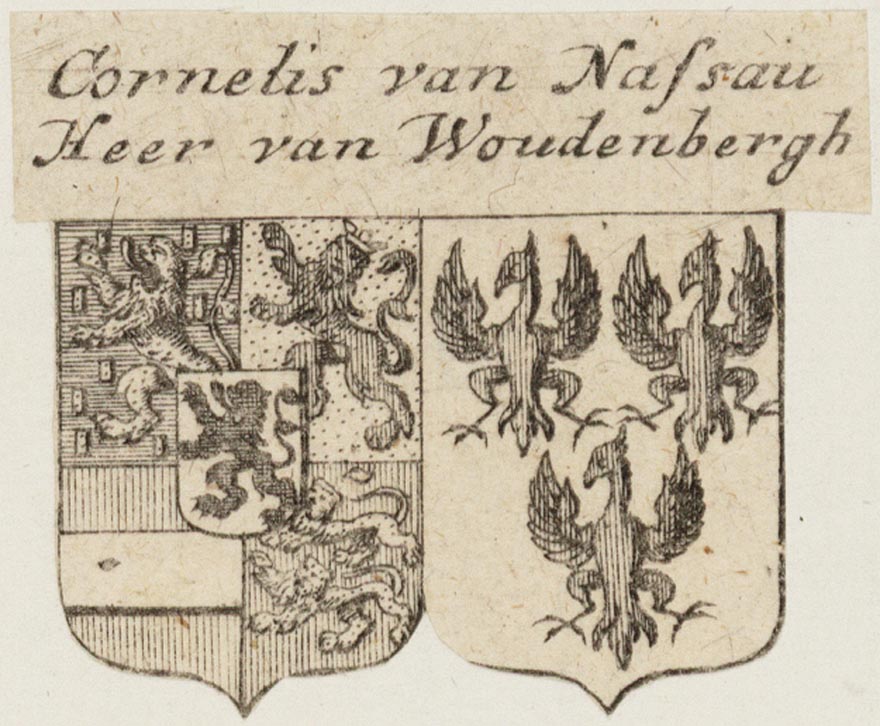 Cornelis van Naſsau
Heer van Woudenbergh